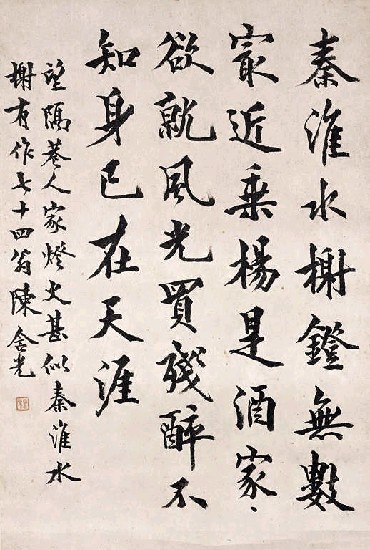 秦淮水榭鐙無數
㝡近垂楊是酒家
欲就風光買殘醉不
知身已在天涯
望隔巷人家燈火甚似秦淮水
榭有作七十四翁陳含光